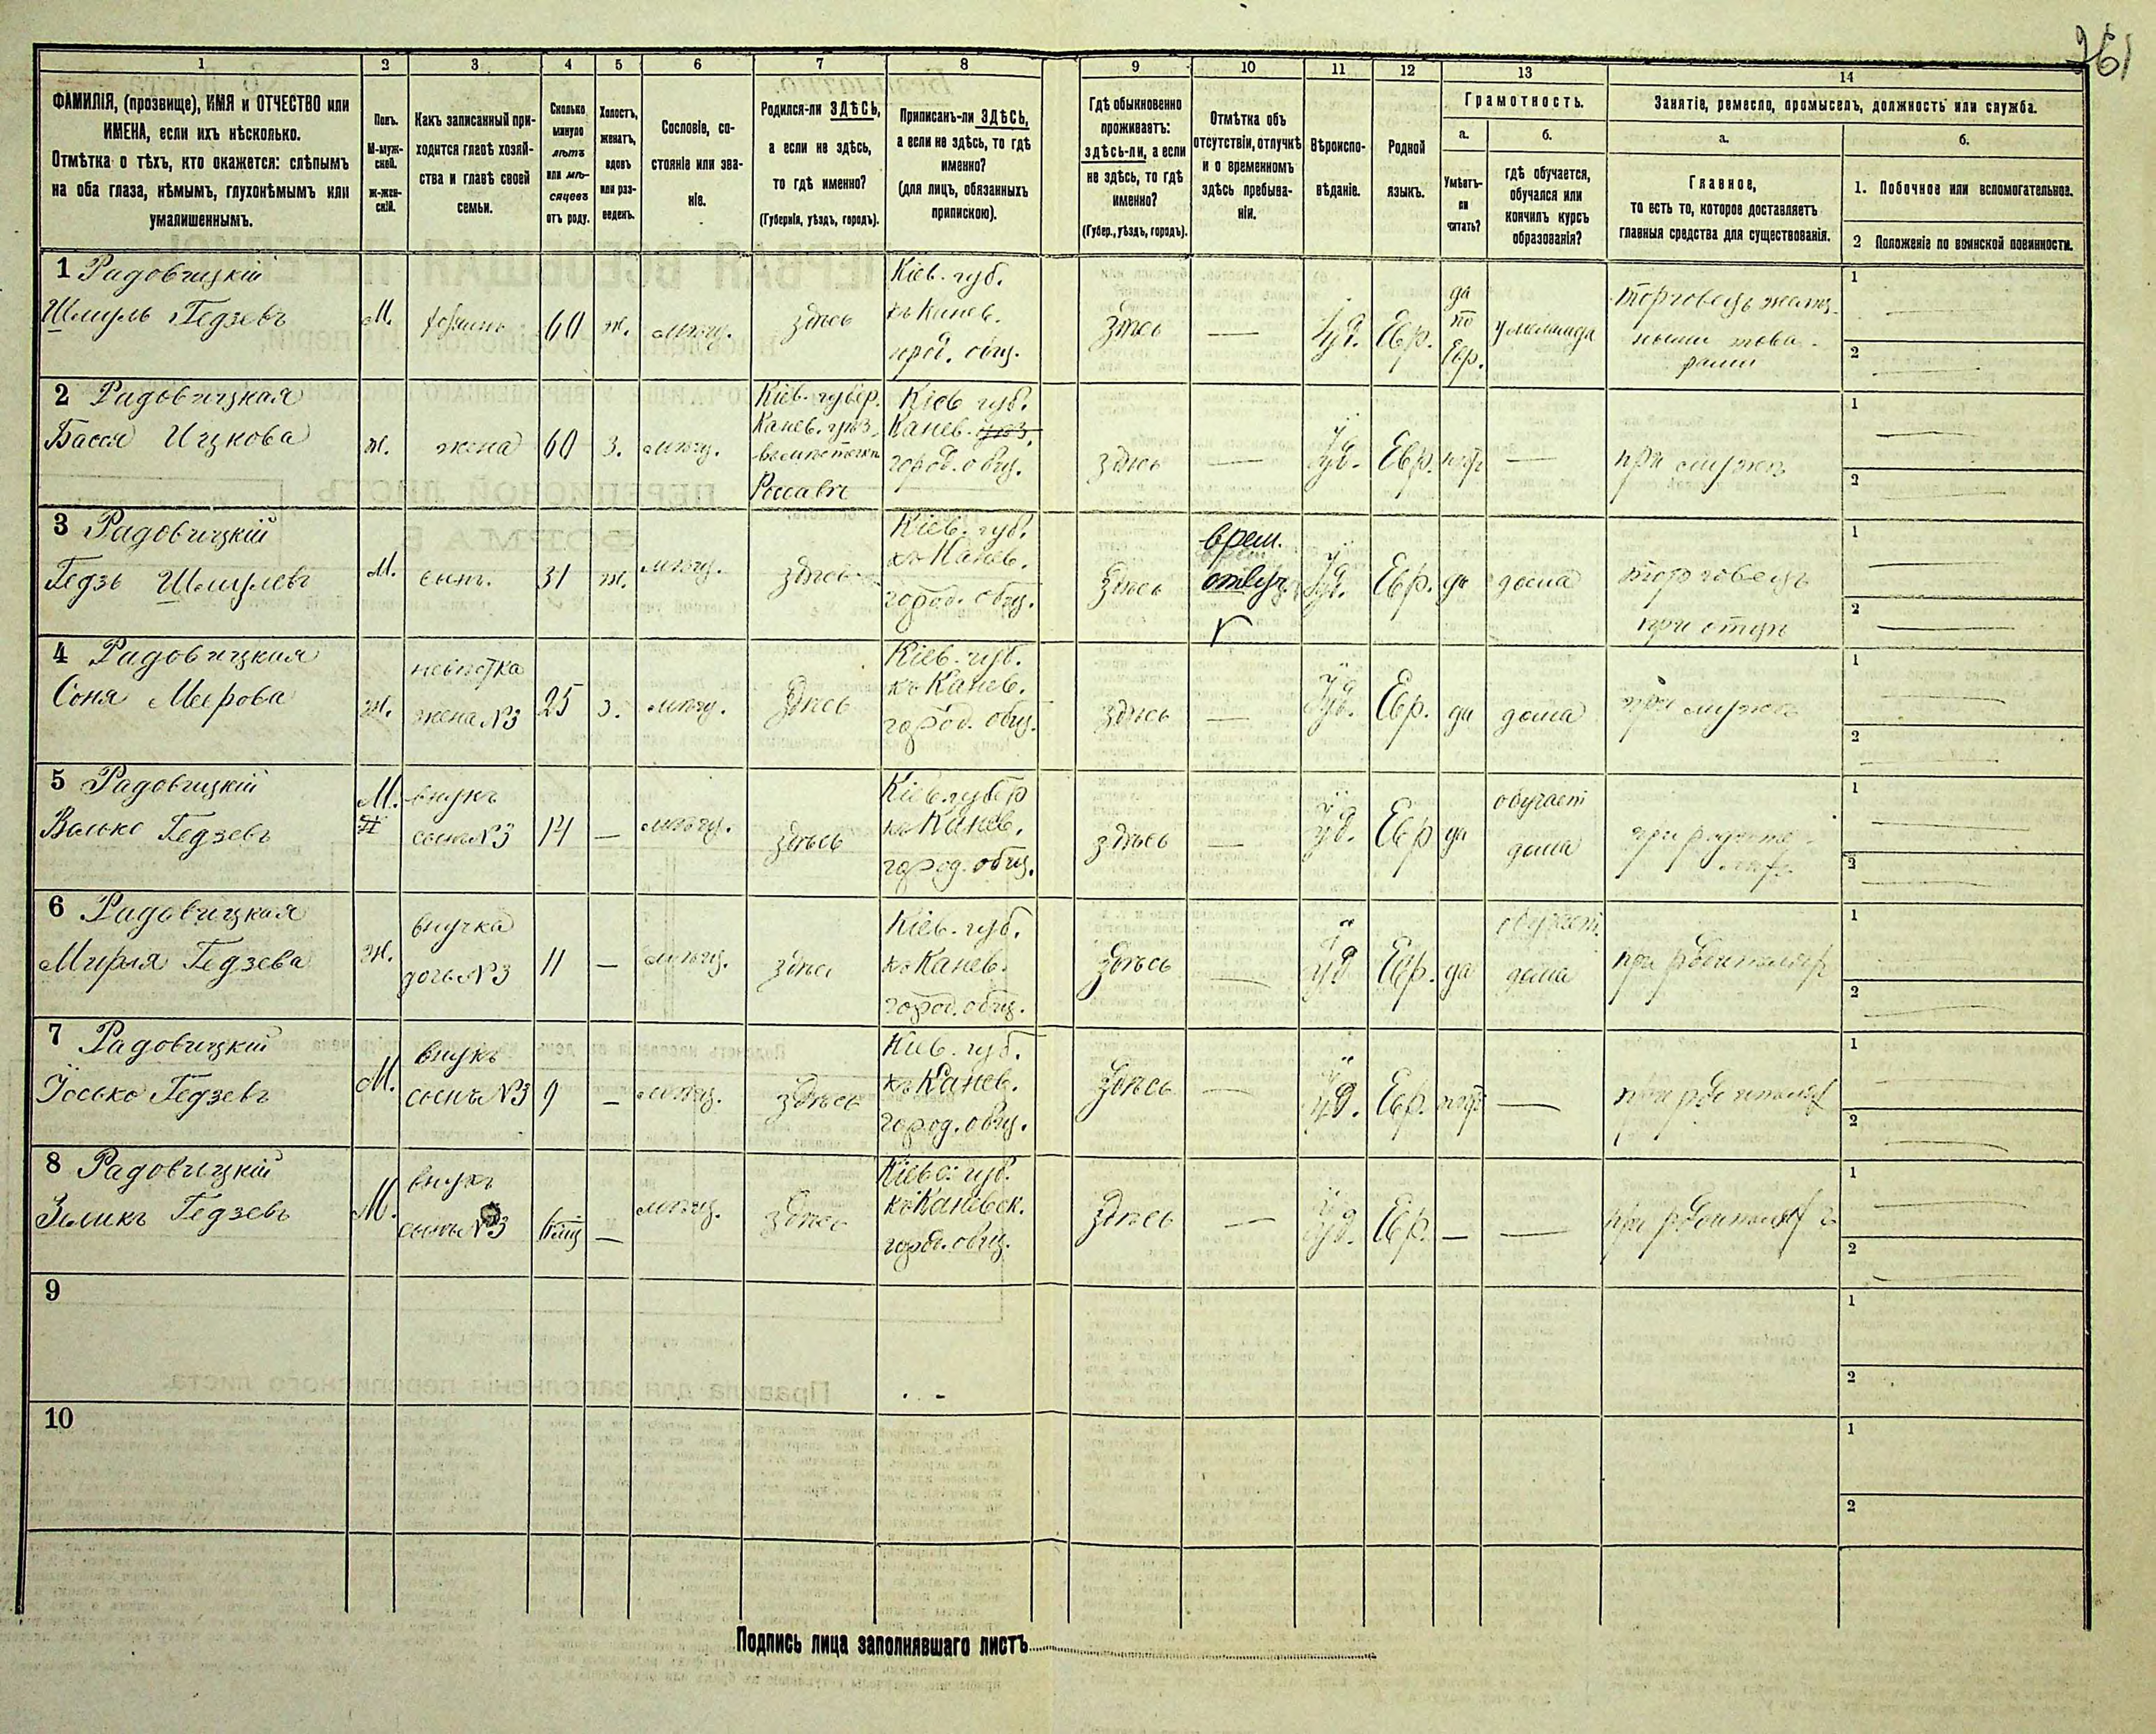 261
1
2
3
4
5
6
7
8
9
10
11
12
13
14
ФАМИЛІЯ, (прозвище), ИМЯ и ОТЧЕСТВО или
ИМЕНА, если ихъ нѣсколько.
Отмѣтка о тѣхъ, кто окажется: слѣпымъ
на оба глаза, нѣмымъ, глухонѣмымъ или
умалишеннымъ.
Полъ.
М-муж-
ской.
ж-жен-
скій.
Какъ записанный при-
ходится главѣ хозяй-
ства и главѣ своей
семьи.
Сколько
минуло
лѣтъ
или мѣ-
сяцевъ
отъ роду.
Холостъ,
женатъ,
вдовъ
или раз-
веденъ.
Сословіе, со-
стояніе или зва-
ніе.
Родился-ли ЗДѢСЬ,
а если не здѣсь,
то гдѣ именно?
(Губернія, уѣздъ, городъ).
Приписанъ-ли ЗДѢСЬ,
а если не здѣсь, то гдѣ
именно?
(для лицъ, обязанныхъ
припискою).
Гдѣ обыкновенно
проживаетъ:
здѣсь-ли, а если
не здѣсь, то гдѣ
именно?
(Губер., уѣздъ, городъ).
Отмѣтка объ
отсутствіи, отлучкѣ
и о временномъ
здѣсь пребыва-
ніи.
Вѣроиспо-
вѣданіе.
Родной
языкъ.
Грамотность.
а.
б.
Умѣетъ-
ли
читать?
гдѣ обучается,
обучался или
кончилъ курсъ
образованія?
Занятіе, ремесло, промыселъ, должность или служба.
а.
б.
Главное,
то есть то, которое доставляетъ
главныя средства для существованія.
1. Побочное или вспомогательное.
2 Положеніе по воинской повинности.
1 Радовицкій
Шмуль Гедзевъ
М.
60
ж.
мѣщ.
здѣсь
Кіев. губ.
къ Канев.
город. общ.
здѣсь
—
Іуд.
Евр.
да
по
Евр.
у меламеда
торговецъ
1
2
2 Радовицкая
Бася Ицкова
ж.
жена
60
з.
мѣщ.
Кіев. губер.
Канев. уѣз.
въ мѣстечкѣ
Россавѣ
Кіев губ.
Канев. уѣз.
город. общ.
здѣсь
—
Іуд.
Евр.
нѣтъ
—
при мужѣ
1
2
3 Радовицкій
Гедзь Шмулевъ
М.
сынъ.
31
ж.
мѣщ.
здѣсь
Кіев. губ.
къ Канев.
город. общ.
здѣсь
врем.
отлуч.
Іуд.
Евр.
да
дома
торговецъ
при отцѣ
1
2
4 Радовицкая
Соня Меерова
ж.
невѣстка
жена №3
25
з.
мѣщ.
здѣсь
Кіев. губ.
къ Канев.
город. общ.
здѣсь
—
Іуд.
Евр.
да
дома
при мужѣ
1
2
5 Радовицкій
Волько Гедзевъ
М.
внукъ
сынъ №3
14
—
мѣщ.
здѣсь
Кіев. губер
къ Канев.
город. общ.
здѣсь
—
Іуд.
Евр
да
обучает
дома
при родите-
ляхъ
1
2
6 Радовицкая
Мирля Гедзева
ж.
внучка
дочь №3
11
—
мѣщ.
здѣсь
Кіев. губ.
къ Канев.
город. общ.
здѣсь
—
Іуд
Евр.
да
обучает.
дома
при родителяхъ
1
2
7 Радовицкій
Іосько Гедзевъ
М.
внукъ
сынъ №3
9
—
мѣщ.
здѣсь
Кіев. губ.
къ Канев.
город. общ.
здѣсь
—
Іуд.
Евр.
нѣтъ
—
при родителяхъ
1
2
8 Радовицкій
Зеликъ Гедзевъ
М.
внукъ
сынъ №3
—
мѣщ.
здѣсь
Кіевс. губ.
къ Каневск.
город. общ.
здѣсь
—
Іуд.
Евр.
—
—
при родителяхъ
1
2
9
1
2
10
1
2
Подпись лица заполнявшаго листъ